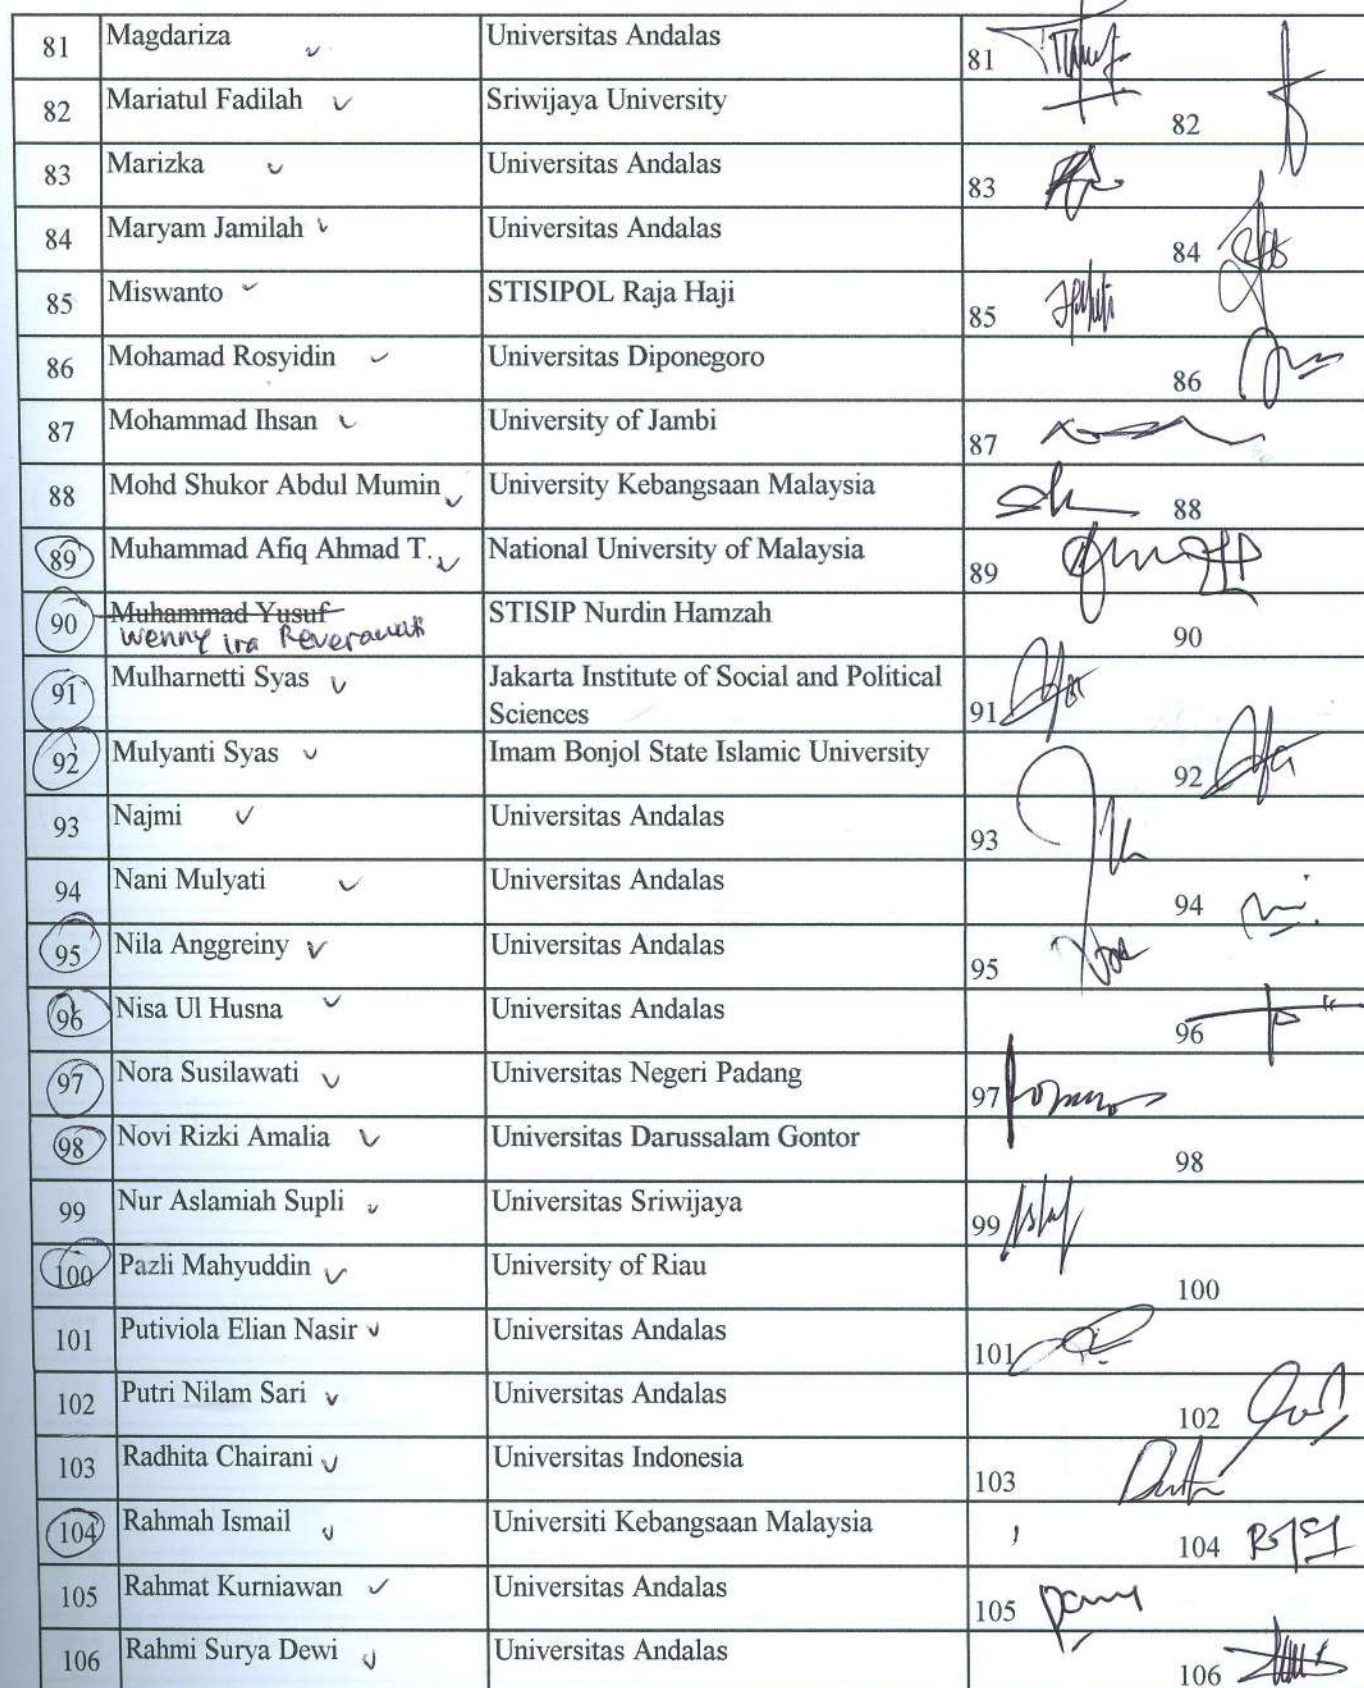 81 Magdariza Universitas Andalas 81
82 Mariatul Fadilah Sriwijaya University 82
83 Marizka Universitas Andalas 83
84 Maryam Jamilah Universitas Andalas 84
85 Miswanto STISIPOL Raja Haji 85
86 Mohamad Rosyidin Universitas Diponegoro 86
87 Mohammad Ihsan University of Jambi 87
88 Mohd Shukor Abdul Mumin University Kebangsaan Malaysia 88
89 Muhammad Afiq Ahmad T. National University of Malaysia 89
90 Muhammad Yusuf STISIP Nurdin Hamzah 90
Wenny ira
91 Mulharnetti Syas Jakarta Institute of Social and Political 91
Sciences
92 Mulyanti Syas Imam Bonjol State Islamic University 92
93 Najmi Universitas Andalas 93
94 Nani Mulyati Universitas Andalas 94
95 Nila Anggreiny Universitas Andalas 95
96 Nisa Ul Husna Universitas Andalas 96
97 Nora Susilawati Universitas Negeri Padang 97
98 Novi Rizki Amalia Universitas Darussalam Gontor 98
99 Nur Aslamiah Supli Universitas Sriwijaya 99
100 Pazli Mahyuddin University of Riau 100
101 Putiviola Elian Nasir Universitas Andalas 101
102 Putri Nilam Sari Universitas Andalas 102
103 Radhita Chairani Universitas Indonesia 103
104 Rahmah Ismail Universiti Kebangsaan Malaysia 104
105 Rahmat Kurniawan Universitas Andalas 105
106 Rahmi Surya Dewi Universitas Andalas 106